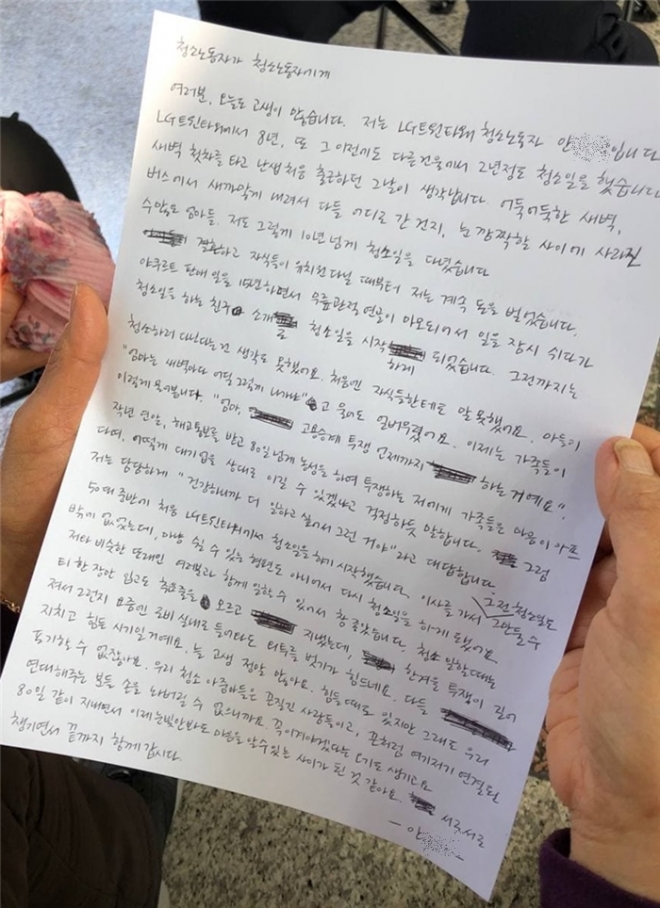 청소노동자가 청소노동자에게
여러분, 오늘도 고생이 많습니다. 저는 LG트윈타워 청소노동자 안 입니다
LG트윈타워에서 8년, 또 그 이전에도 다른건물에서 2년정도 청소일을 했습니다
새벽 첫차를 타고 난생처음 출근하던 그날이 생각납니다. 어둑어둑한 새벽,
버스에서 새까맣게 내려서 다들 어디로 간 건지, 눈 깜짝할 사이에 사라진
수많은 엄마들. 저도 그렇게 10년 넘게 청소일을 다녔습니다
결혼하고 자식들이 유치원 다닐 때부터 저는 계속 돈을 벌었습니다.
야쿠르트 판매 일을 15년하면서 무릎관절 연골이 마모되어서 일을 잠시 쉬다가
청소일을 하는 친구 소개로 청소일을 시작하게 되었습니다. 그전까지는
청소하러 다닌다는 건 생각도 못했어요. 처음엔 자식들한테도 말 못했어요. 아들이
"엄마는 새벽마다 어딜 그렇게 나가냐"고 물어도 얼버무렸어요. 이제는 가족들이
이렇게 물어봅니다. "엄마, 고용승계 투쟁 언제까지 하는 거예요".
작년 연말, 해고통보를 받고 80일 넘게 농성을 하며 투쟁하는 저에게 가족들은 마음이 아프
다며, 어떻게 대기업을 상대로 이길 수 있겠냐고 걱정하듯 말합니다. 그럼
저는 당당하게 "건강하니까 더 일하고 싶어서 그런 거야"라고 대답합니다.
50대 중반에 처음 LG트윈타워에서 청소일을 하기 시작했습니다. 이사를 가서 그전 청소일도 그만둘 수
밖에 없었는데, 마냥 쉴 수 있는 형편도 아니어서 다시 청소일을 하게 됐어요.
저와 비슷한 또래인 여러분과 함께 일할 수 있어서 참 좋았습니다. 청소 일할때는
티 한 장만 입고도 오르고 지냈는데, 한겨울 투쟁이 길어
져서 그런지 요즘엔 로비 실내로 들어와도 외투를 벗기가 힘드네요. 다들
지치고 힘든 시기일 거예요. 늘 고생 정말 많아요. 힘들 때도 있지만 그래도 우리
포기할 수 없잖아요. 우리 청소 아줌마들은 끈질긴 사람들이고, 끈처럼 여기저기 연결된
연대해주는 분들 손을 놔버릴 수 없으니까요. 꼭 이겨야겠다는 오기도 생기고요
80일 같이 지내면서 이제 눈빛만봐도 마음을 알 수 있는 사이가 된 것 같아요. 서로서로
챙기면서 끝까지 함께 갑시다.
- 안